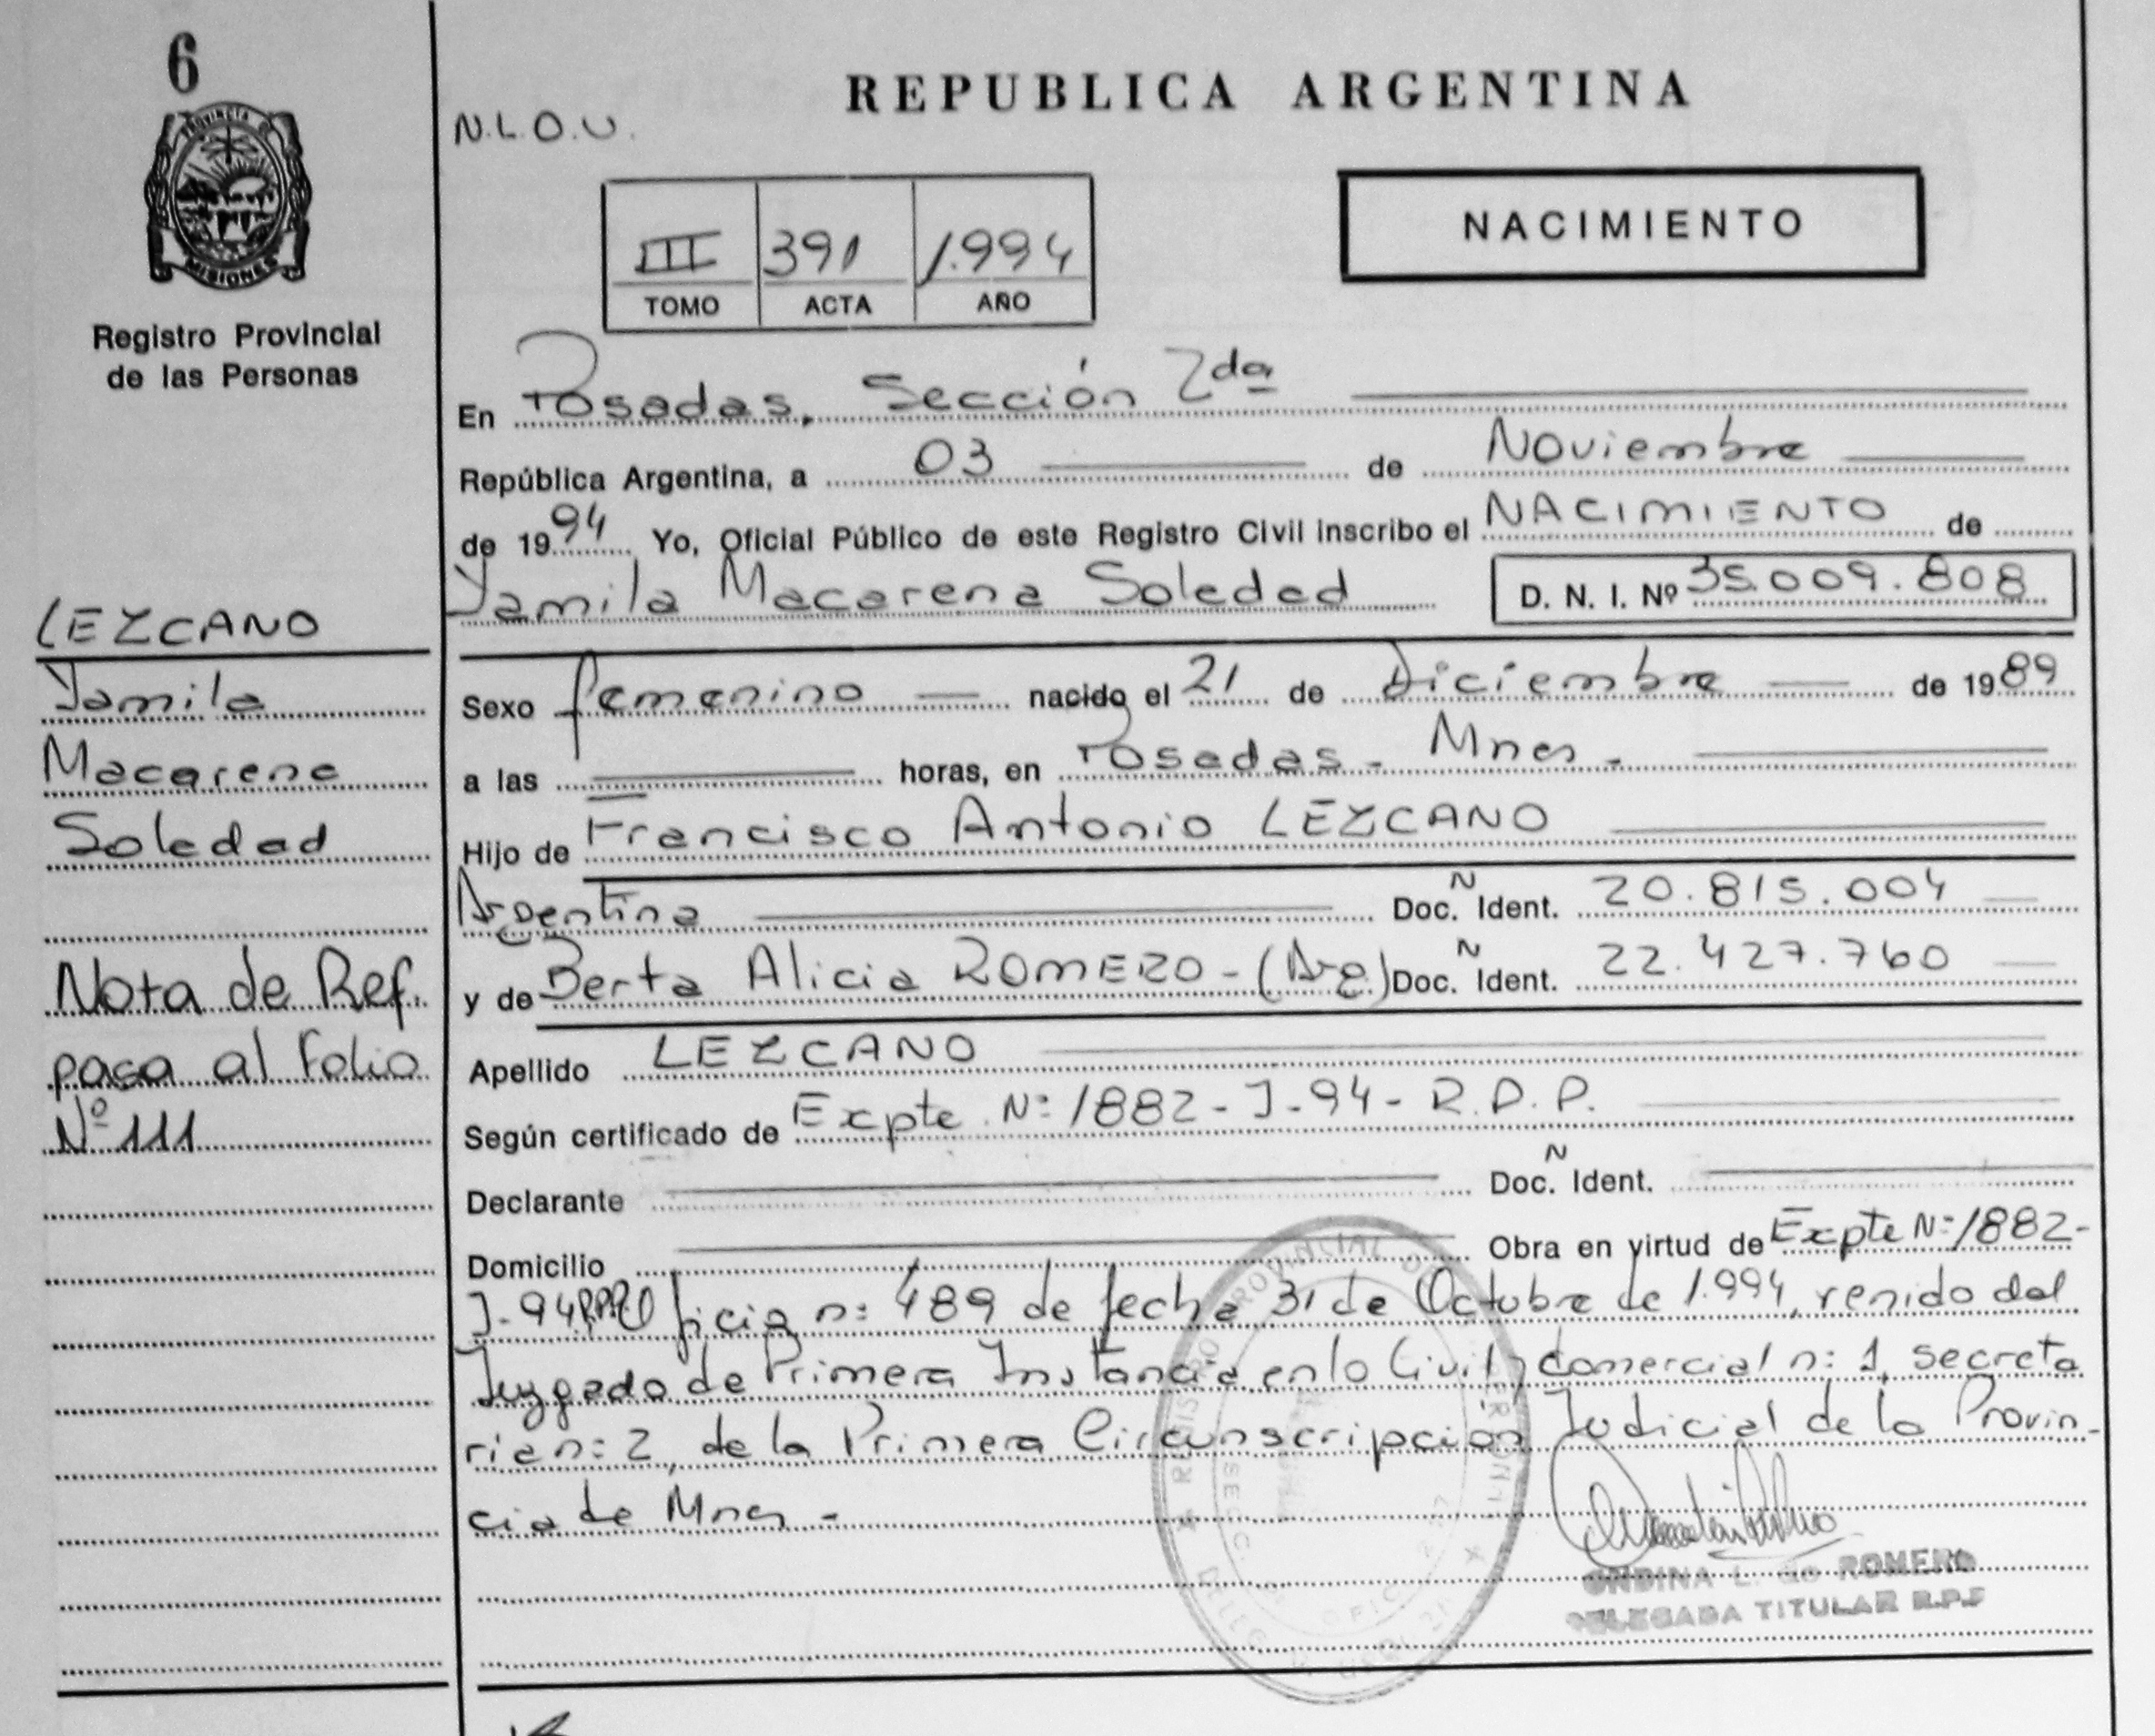 6
PROVINCIA DE
MISIONES
Registro Provincial
de las Personas
LEZCANO
Yamila
Macarena
Soledad
Nota de Ref.
pasa al Folio
Nº 111
REPUBLICA ARGENTINA
N.L.O.U.
III 391 1.994
TOMO ACTA AÑO
NACIMIENTO
En Posadas, Sección 2da
República Argentina, a 03 de Noviembre
de 1994 Yo, Oficial Público de este Registro Civil inscribo el NACIMIENTO de
Yamila Macarena Soledad D. N. I. Nº 35.009.808
Sexo femenino nacido el 21 de Diciembre de 1989
a las horas, en Posadas - Mnes -
Hijo de Francisco Antonio LEZCANO
Argentina Doc. Ñ Ident. 20.815.004
y de Berta Alicia ROMERO - (Arg.) Doc. Ñ Ident. 22.427.760
Apellido LEZCANO
Según certificado de Expte Nº 1882 - J - 94 - R.P.P.
Declarante Doc. Ñ Ident.
Domicilio Obra en virtud de Expte Nº 1882-
J-94 n: 489 de fecha 31 de Octubre de 1.994, del
Juzgado de Primera Instancia en lo Civil y Comercial n: 1, secreta
ria n: 2, de la Primera Circunscripción Judicial de la Provin-
cia de Mnes -
ONDINA L. de ROMERO
DELEGADA TITULAR R.P.P